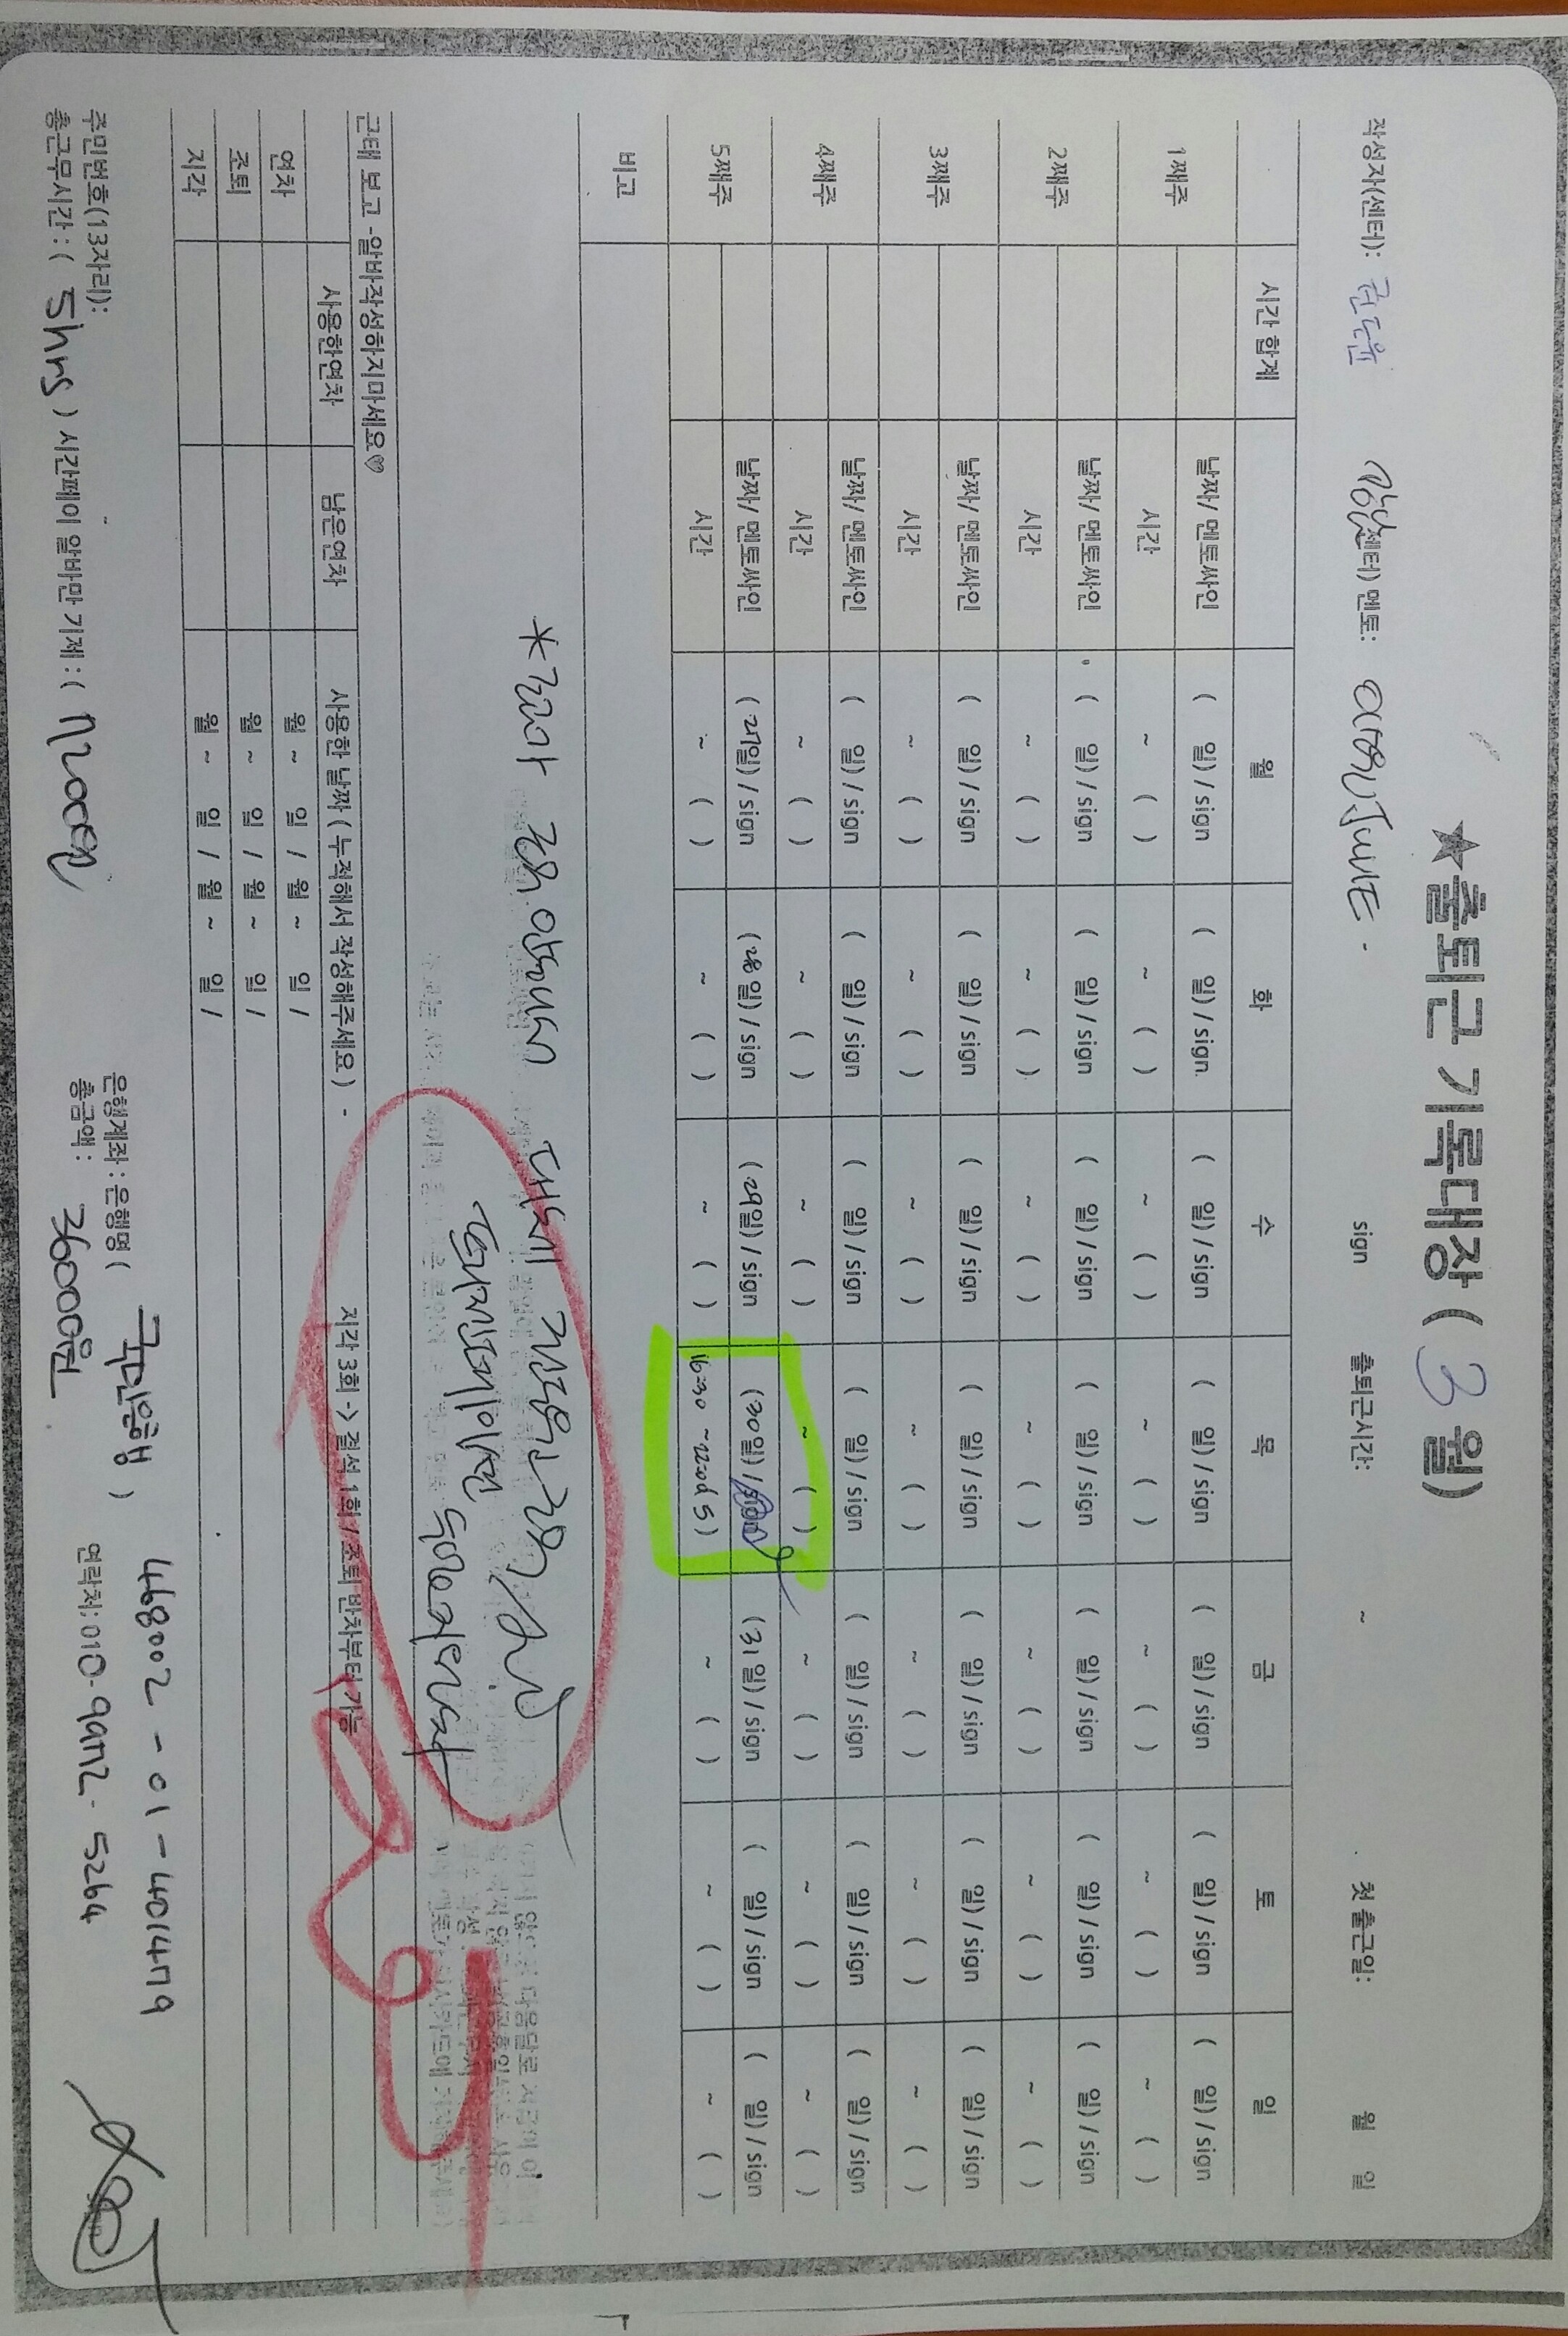 ★출퇴근 기록대장 ( 3 월)
작성자(센터): 센터) 멘토: sign 출퇴근시간: ~ 첫 출근일: 월 일
시간 합계 월 화 수 목 금 토 일
1째주 날짜/ 멘토싸인 ( 일) / sign ( 일) / sign ( 일) / sign ( 일) / sign ( 일) / sign ( 일) / sign ( 일) / sign
시간 ~ ( ) ~ ( ) ~ ( ) ~ ( ) ~ ( ) ~ ( ) ~ ( )
2째주 날짜/ 멘토싸인 ( 일) / sign ( 일) / sign ( 일) / sign ( 일) / sign ( 일) / sign ( 일) / sign ( 일) / sign
시간 ~ ( ) ~ ( ) ~ ( ) ~ ( ) ~ ( ) ~ ( ) ~ ( )
3째주 날짜/ 멘토싸인 ( 일) / sign ( 일) / sign ( 일) / sign ( 일) / sign ( 일) / sign ( 일) / sign ( 일) / sign
시간 ~ ( ) ~ ( ) ~ ( ) ~ ( ) ~ ( ) ~ ( ) ~ ( )
4째주 날짜/ 멘토싸인 ( 일) / sign ( 일) / sign ( 일) / sign ( 일) / sign ( 일) / sign ( 일) / sign ( 일) / sign
시간 ~ ( ) ~ ( ) ~ ( ) ~ ( ) ~ ( ) ~ ( ) ~ ( )
5째주 날짜/ 멘토싸인 (27일) / sign (28일) / sign (29일) / sign (30일) / sign (31일) / sign ( 일) / sign ( 일) / sign
시간 ~ ( ) ~ ( ) ~ ( ) 16:30 ~22:00( 5 ) ~ ( ) ~ ( ) ~ ( )
비고
대체
근태 보고 -알바작성하지마세요♡
사용한연차 남은연차 사용한 날짜 ( 누적해서 작성해주세요 ) - 지각 3회 -> 결석 1회 / 조퇴 반차부터 가능
연차 월 ~ 일 / 월 ~ 일 /
조퇴 월 ~ 일 / 월 ~ 일 /
지각 월 ~ 일 / 월 ~ 일 /
주민번호(13자리): 은행계좌 : 은행명 ( 국민은행 ) 468002 - 01 - 401479
총근무시간 : ( 5hrs ) 시간페이 알바만 기제 : ( 7200원 총금액 : 36000원 연락처: 010. 9972. 5264